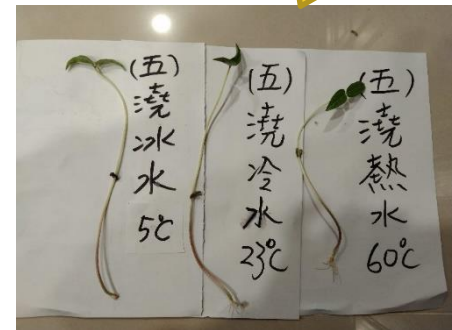 (五)
澆
冰
水
5℃
(五)
澆
冷
水
23℃
(五)
澆
熱
水
60℃